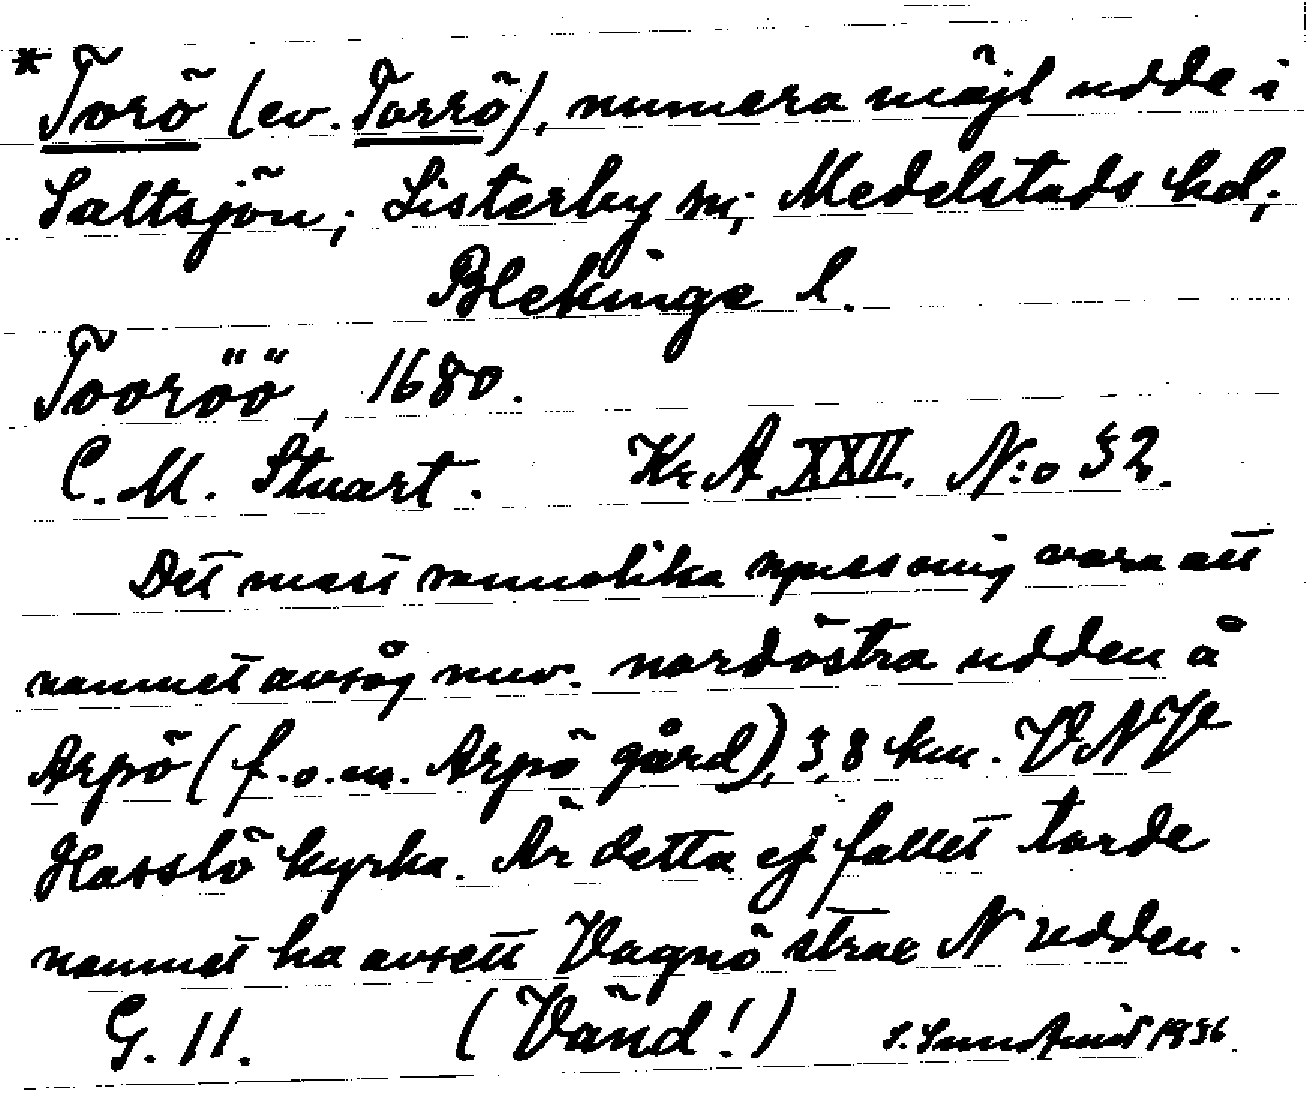 *Torö (ev. Torrö), numera möjl udde i
Saltsjön; Listerby sn; Medelstads hd;
Blekinge l.
Tooröö, 1680.
C. M. Stuart. Kr. A. XXII. N:o 32.
Det mest sannolika synes mig vara att
namnet avsåg nuv. nordöstra udden å
Arpö (f.o.m. Arpö gård), 3,8 km. VNV
Hasslö kyrka. Är detta ej fallet torde
namnet ha avsett Vagnö strax N udden.
G. 11. (Vänd!) S. 1936